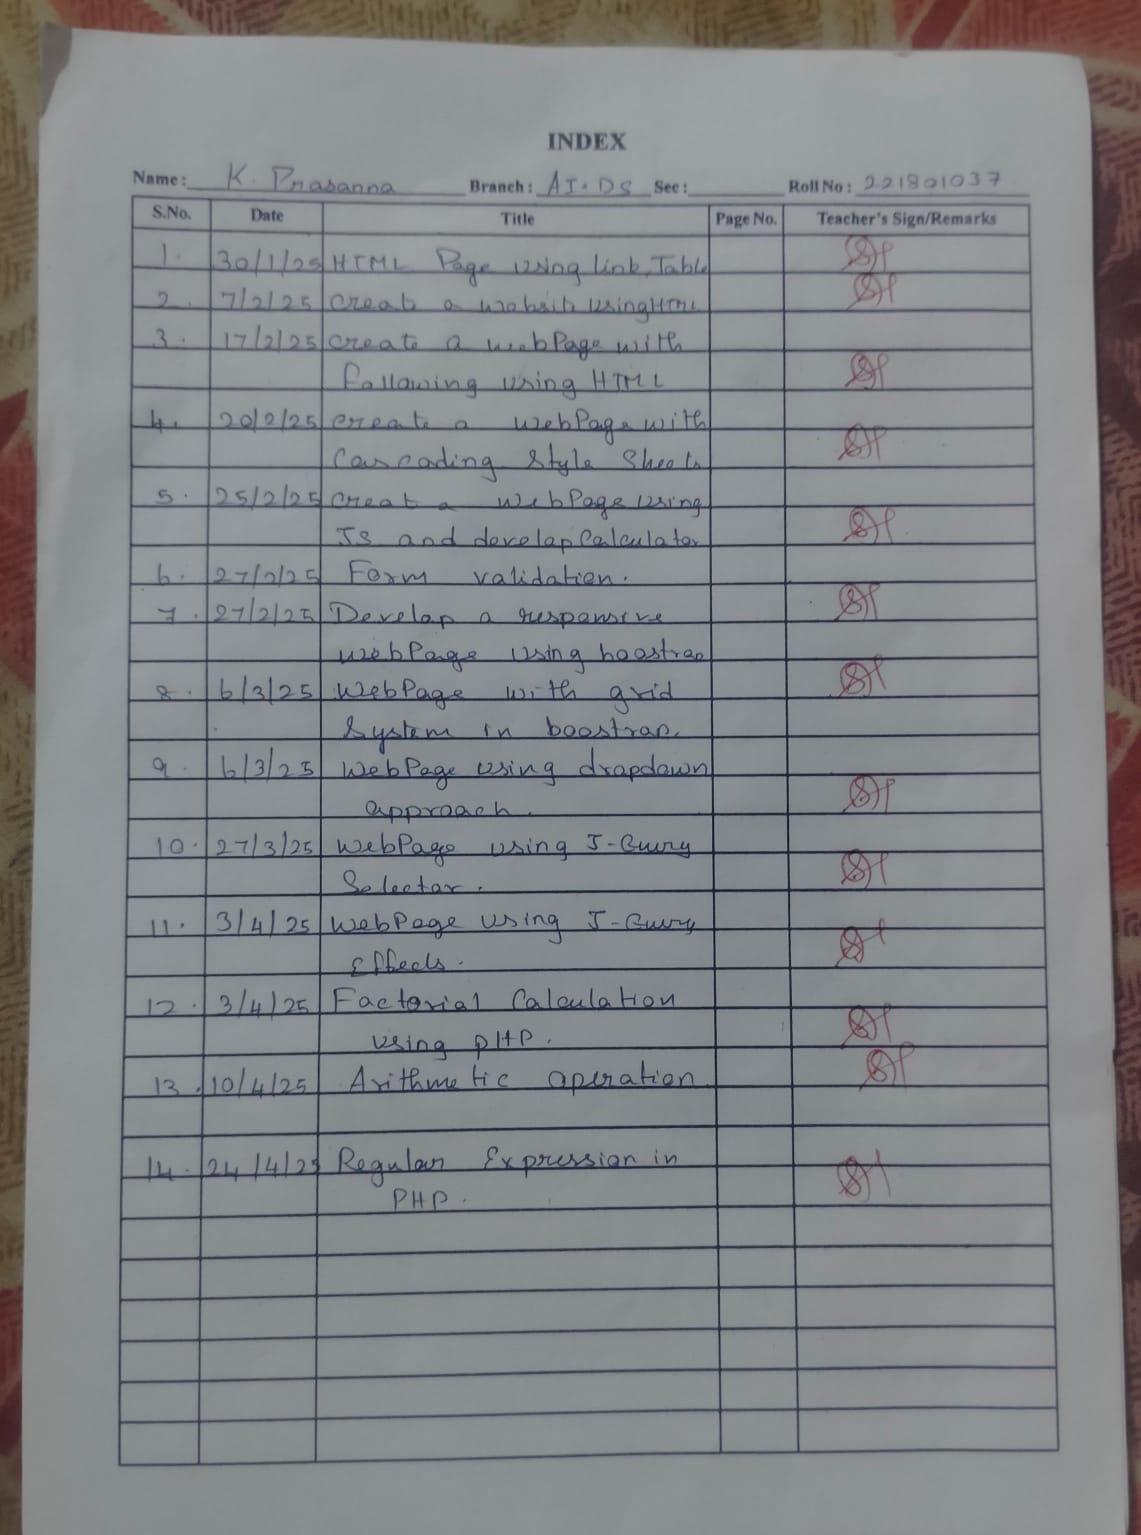 INDEX
Name: K. Prasanna Branch: AI.DS Sec: Roll No: 221801037
S.No. Date Title Page No. Teacher's Sign/Remarks
1. 30/1/25 HTML Page using link, Table
2. 7/2/25 Creat a website using HTML
3. 17/2/25 create a webPage with
following using HTML
4. 20/2/25 create a WebPage with
Cascading Style Sheets
5. 25/2/25 Creat a WebPage using
JS and develop Calculator
6. 27/2/25 Form validation.
7. 27/2/25 Develop a responsive
webPage using boostrap
8. 6/3/25 WebPage with grid
System in boostrap.
9. 6/3/25 WebPage using dropdown
approach.
10. 27/3/25 WebPage using J-Query
Selector.
11. 3/4/25 WebPage using J-Query
Effects.
12. 3/4/25 Factorial Calculation
using PHP.
13. 10/4/25 Arithmetic operation
14. 24/4/25 Regular Expression in
PHP.